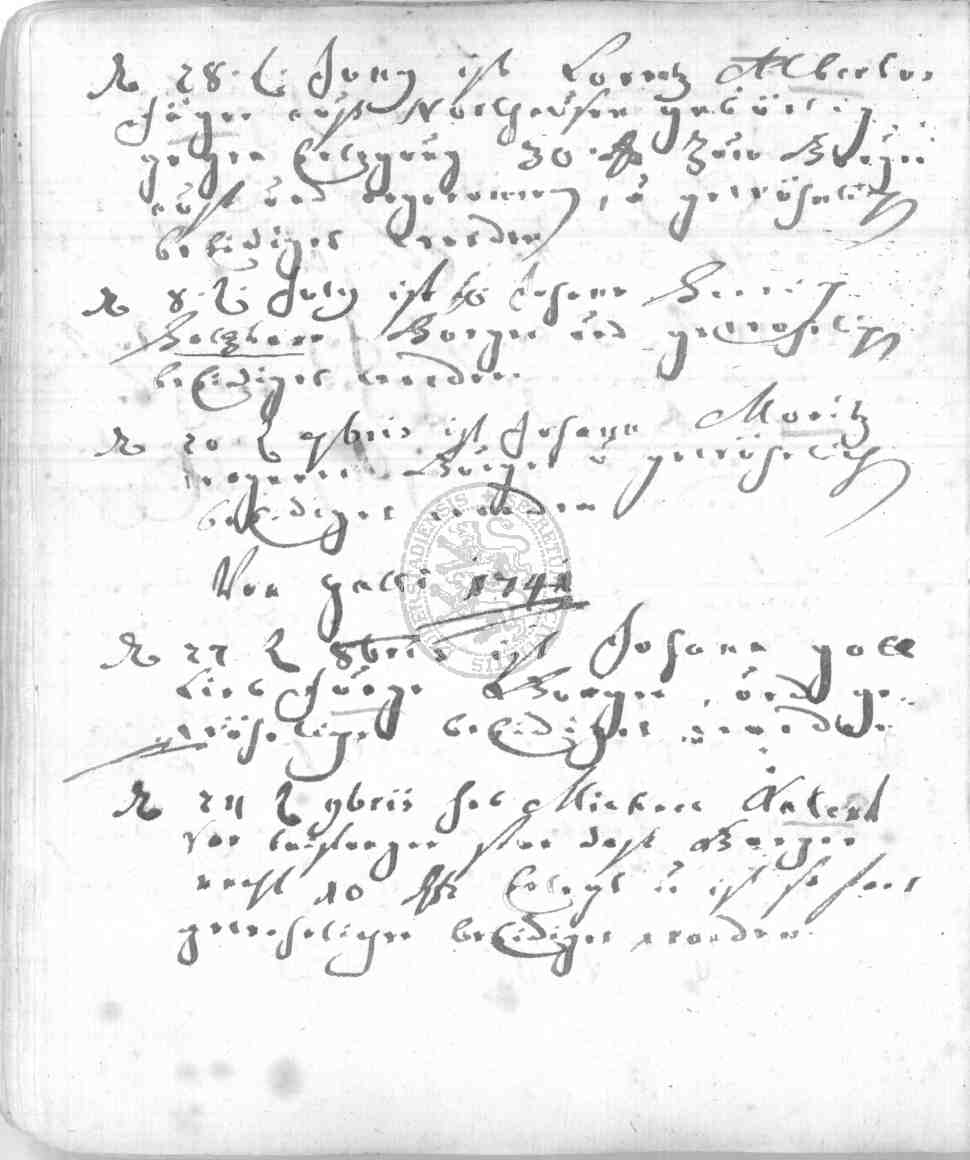 A 28 t Juny ist Lorentz Albertus
Jäger auß Northausen gebürtig
gegen Erlegung 30 fl zum Burger
auff und angenommen u gewöhnlich
beEidiget worden
A 8 t July ist Johann Henrich
Burger und gewehnlich
beEidiget worden
A 20 t 7bris ist Johann Moritz
Burger u gewöhnlich
beEidiget worden
Von Galli 1741
A 27 t 8bris ist Johann Gott
lieb Junge Burger und ge
wöhnliger beEidiget worden
A 24 t 9bris hat Michael
vor daß Burger
recht 10 fl Erlegt u ist so fort
gewehnliger beEidiget worden